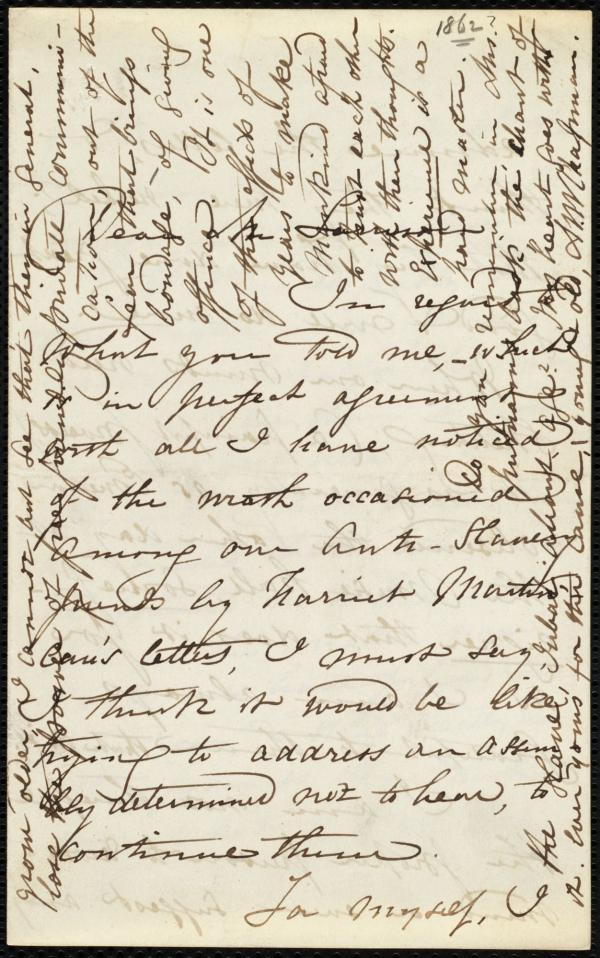 1862?
Dear Mr Garrison
In regard to
what you told me, – which
is in perfect agreement
with all I have noticed
of the wrath occasioned
among our Anti-Slavery
friends by Harriet Martin-
eau's letters, I must say
I think it would be like
trying to address an assem
bly determined not to hear, to
continue them.
For myself, I
grow older & I cannot but see that then in general,
lose the power of free friendly private communi-
cation, out of the
fear that brings
bondage, – of giving
offence. It is one
of the effects of
years to make
mankind afraid
to trust each other
with their thoughts.
Experience is a
hard master in this.
Do you remember
the chant of
age? his heart goes with
it. Ever yours for the cause, – young & old, M.W. Chapman.